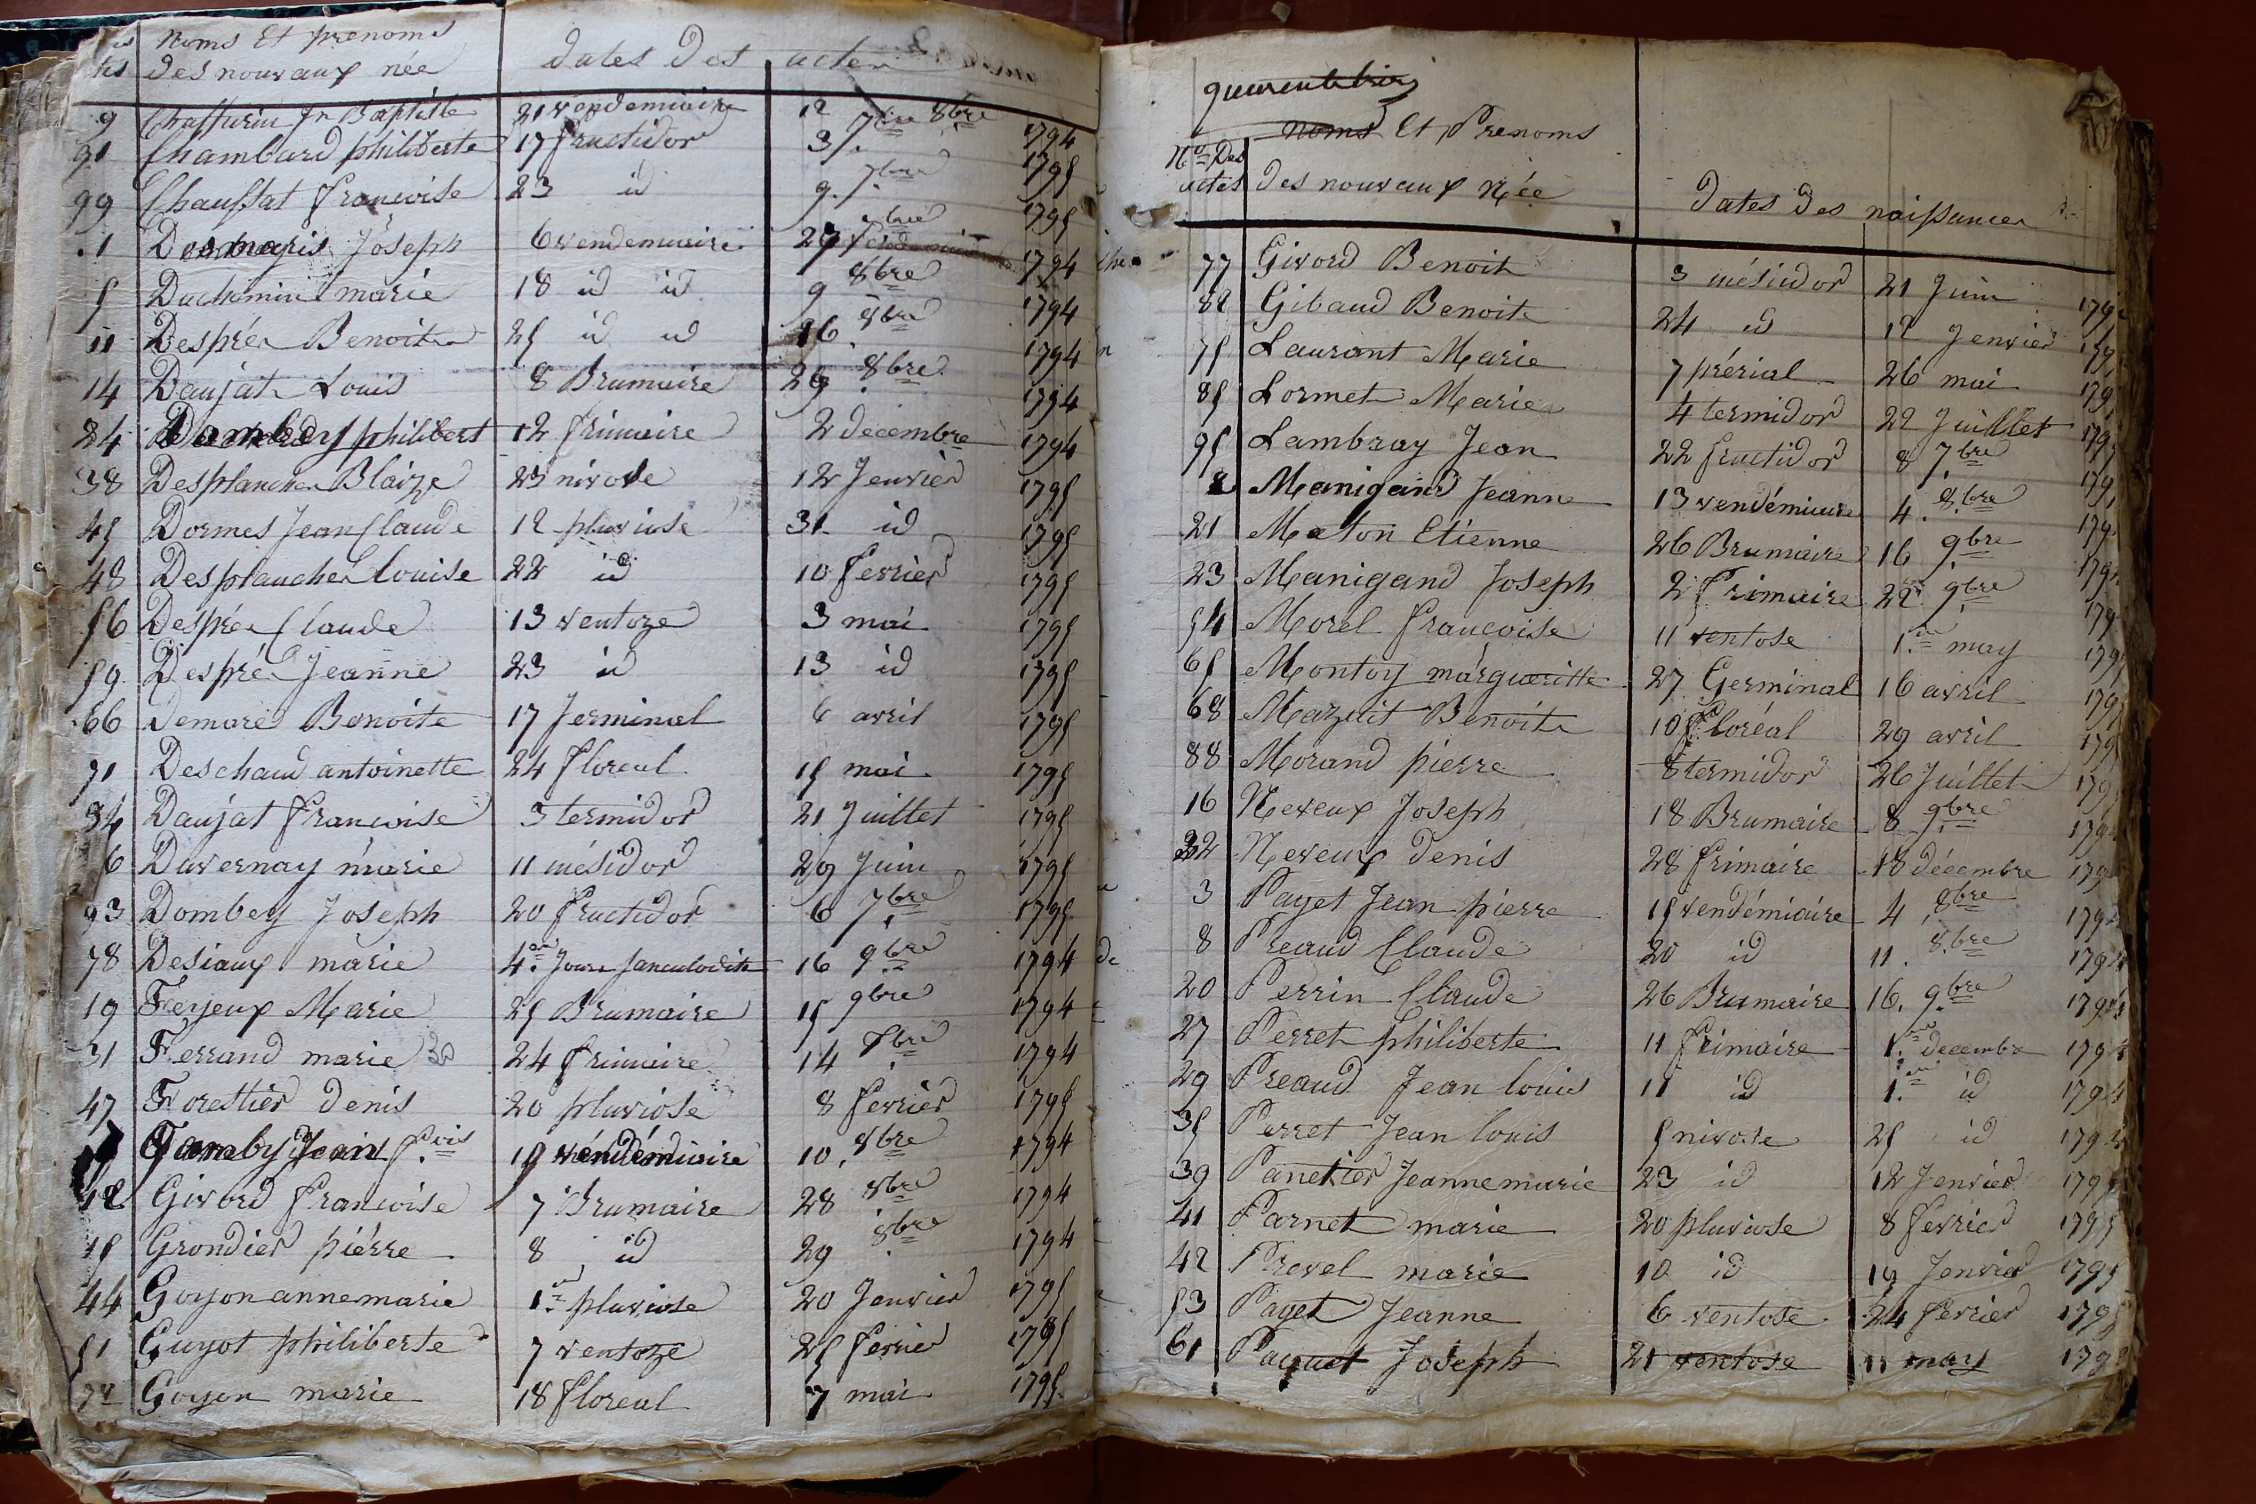 Noms Et prenoms
des nouvaux née
dates Des actes
9 Chaffurin Jn Baptiste 21 vendemiaire 12 8bre 1794
91 Chambard philiberte 17 fructidor 3 7bre 1795
99 Chaussat francoise 23 id 9. 7bre 1795
1 Desmaris Joseph 6 vendemiaire 27 7bre 1794
5 Duchemin marie 18 id id 9 8bre 1794
11 Desprée Benoite 25 id id 16 8bre 1794
14 Daujat Louis 8 Brumaire 29 8bre 1794
24 Dombey philibert 12 frimaire 2 decembre 1794
38 Desplanche Blaize 23 nivose 12 Jenvier 1795
45 Dormes Jean Claude 12 pluviose 31 id 1795
48 Desplanche Louise 22 id 10 fevrier 1795
56 Desprée Claude 13 ventoze 3 mai 1795
59 Desprée Jeanne 23 id 13 id 1795
66 demare Benoite 17 Jerminal 6 avril 1795
71 Deschaud antoinette 24 floreal 15 mai 1795
84 Daujat francoise 3 termidor 21 Juillet 1795
6 Duvernay marie 11 mésidor 29 Juin 1795
93 Dombey Joseph 20 fructidor 6 7bre 1795
78 Desiaux marie 4e Jour 16 9bre 1794
19 Feyeux Marie 25 Brumaire 15 9bre 1794
31 Ferrand marie 30 24 frimaire 14 1794
47 Forestier denis 20 pluviose 8 fevrier 1795
Jean f.ois 19 véndémiaire 10. 8bre 1794
12 Givord francoise 7 Brumaire 28 8bre 1794
15 Grondier piérre 8 id 29 8bre 1794
44 Goyon annemarie 1er pluviose 20 Jenvier 1795
51 Guyot philiberte 7 ventoze 25 fevrier 1795
72 Goyon marie 18 floreal 7 mai 1795
noms Et Prenoms
No Des
actes des nouvaux Née
dates des naissances
77 Givord Benoit 3 mésidor 21 Juin 179
82 Gibaud Benoite 24 id 12 Jenvier 179
75 Laurant Marie 7 prérial 26 mai 179
85 Lormet Marie 4 termidor 22 Juillet 179
95 Lambray Jean 22 fructidor 8 7bre 179
2 Manigand Jeanne 13 vendémiaire 4. 8bre 179
21 Maton Etienne 26 Brumaire 16 9bre 179
23 Manigand Joseph 2 frimaire 22 9bre 179
54 Morel francoise 11 ventose 1er may 179
65 Montoy margueritte 27 Germinal 16 avril 179
68 Mazuit Benoite 10 floréal 29 avril 179
88 Morand pierre 8 termidor 26 Juillet 179
16 Neveux Joseph 18 Brumaire 8 9bre 179
32 Neveux denis 28 frimaire 18 décembre 179
3 Payet Jean pierre 15 vendémiaire 4 8bre 179
8 Preaud Claude 20 id 11. 8bre 1794
20 Perrin Claude 26 Brumaire 16. 9bre 1794
27 Perret philiberte 11 frimaire 1er decembre 1794
29 Preaud Jean louis 11 id 1er id 1794
35 Perret Jean louis 5 nivose 25 id 1794
39 Panetier Jeannemarie 23 id 12 Jenvier 1795
41 Parnet marie 20 pluviose 8 fevrier 1795
42 Prevel marie 10 id 19 Jenvier 1795
53 Payet Jeanne 6 ventose 24 fevrier 1795
61 Paquet Joseph 21 ventose 11 may 179